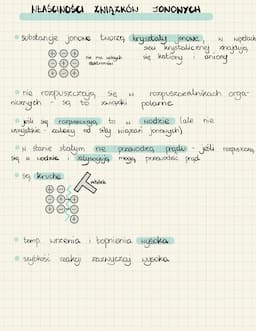 WŁAŚCIWOŚCI ZWIĄZKÓW JONOWYCH
substancje jonowe tworzą kryształy jonowe, w węzłach
sieci krystalicznej znajdują
się kationy i aniony
nie ma wolnych
elektronów
nie rozpuszczają się w rozpuszczalnikach orga-
nicznych - są to związki polarne
jeśli się rozpuszczają, to w wodzie (ale nie
wszystkie - zależy od siły wiązań jonowych)
w stanie stałym nie przewodzą prądu - jeśli rozpuszczą
się w wodzie i zdysocjują mogą przewodzić prąd
są kruche
młotek
temp. wrzenia i topnienia wysoka
szybkość reakcji zazwyczaj wysoka